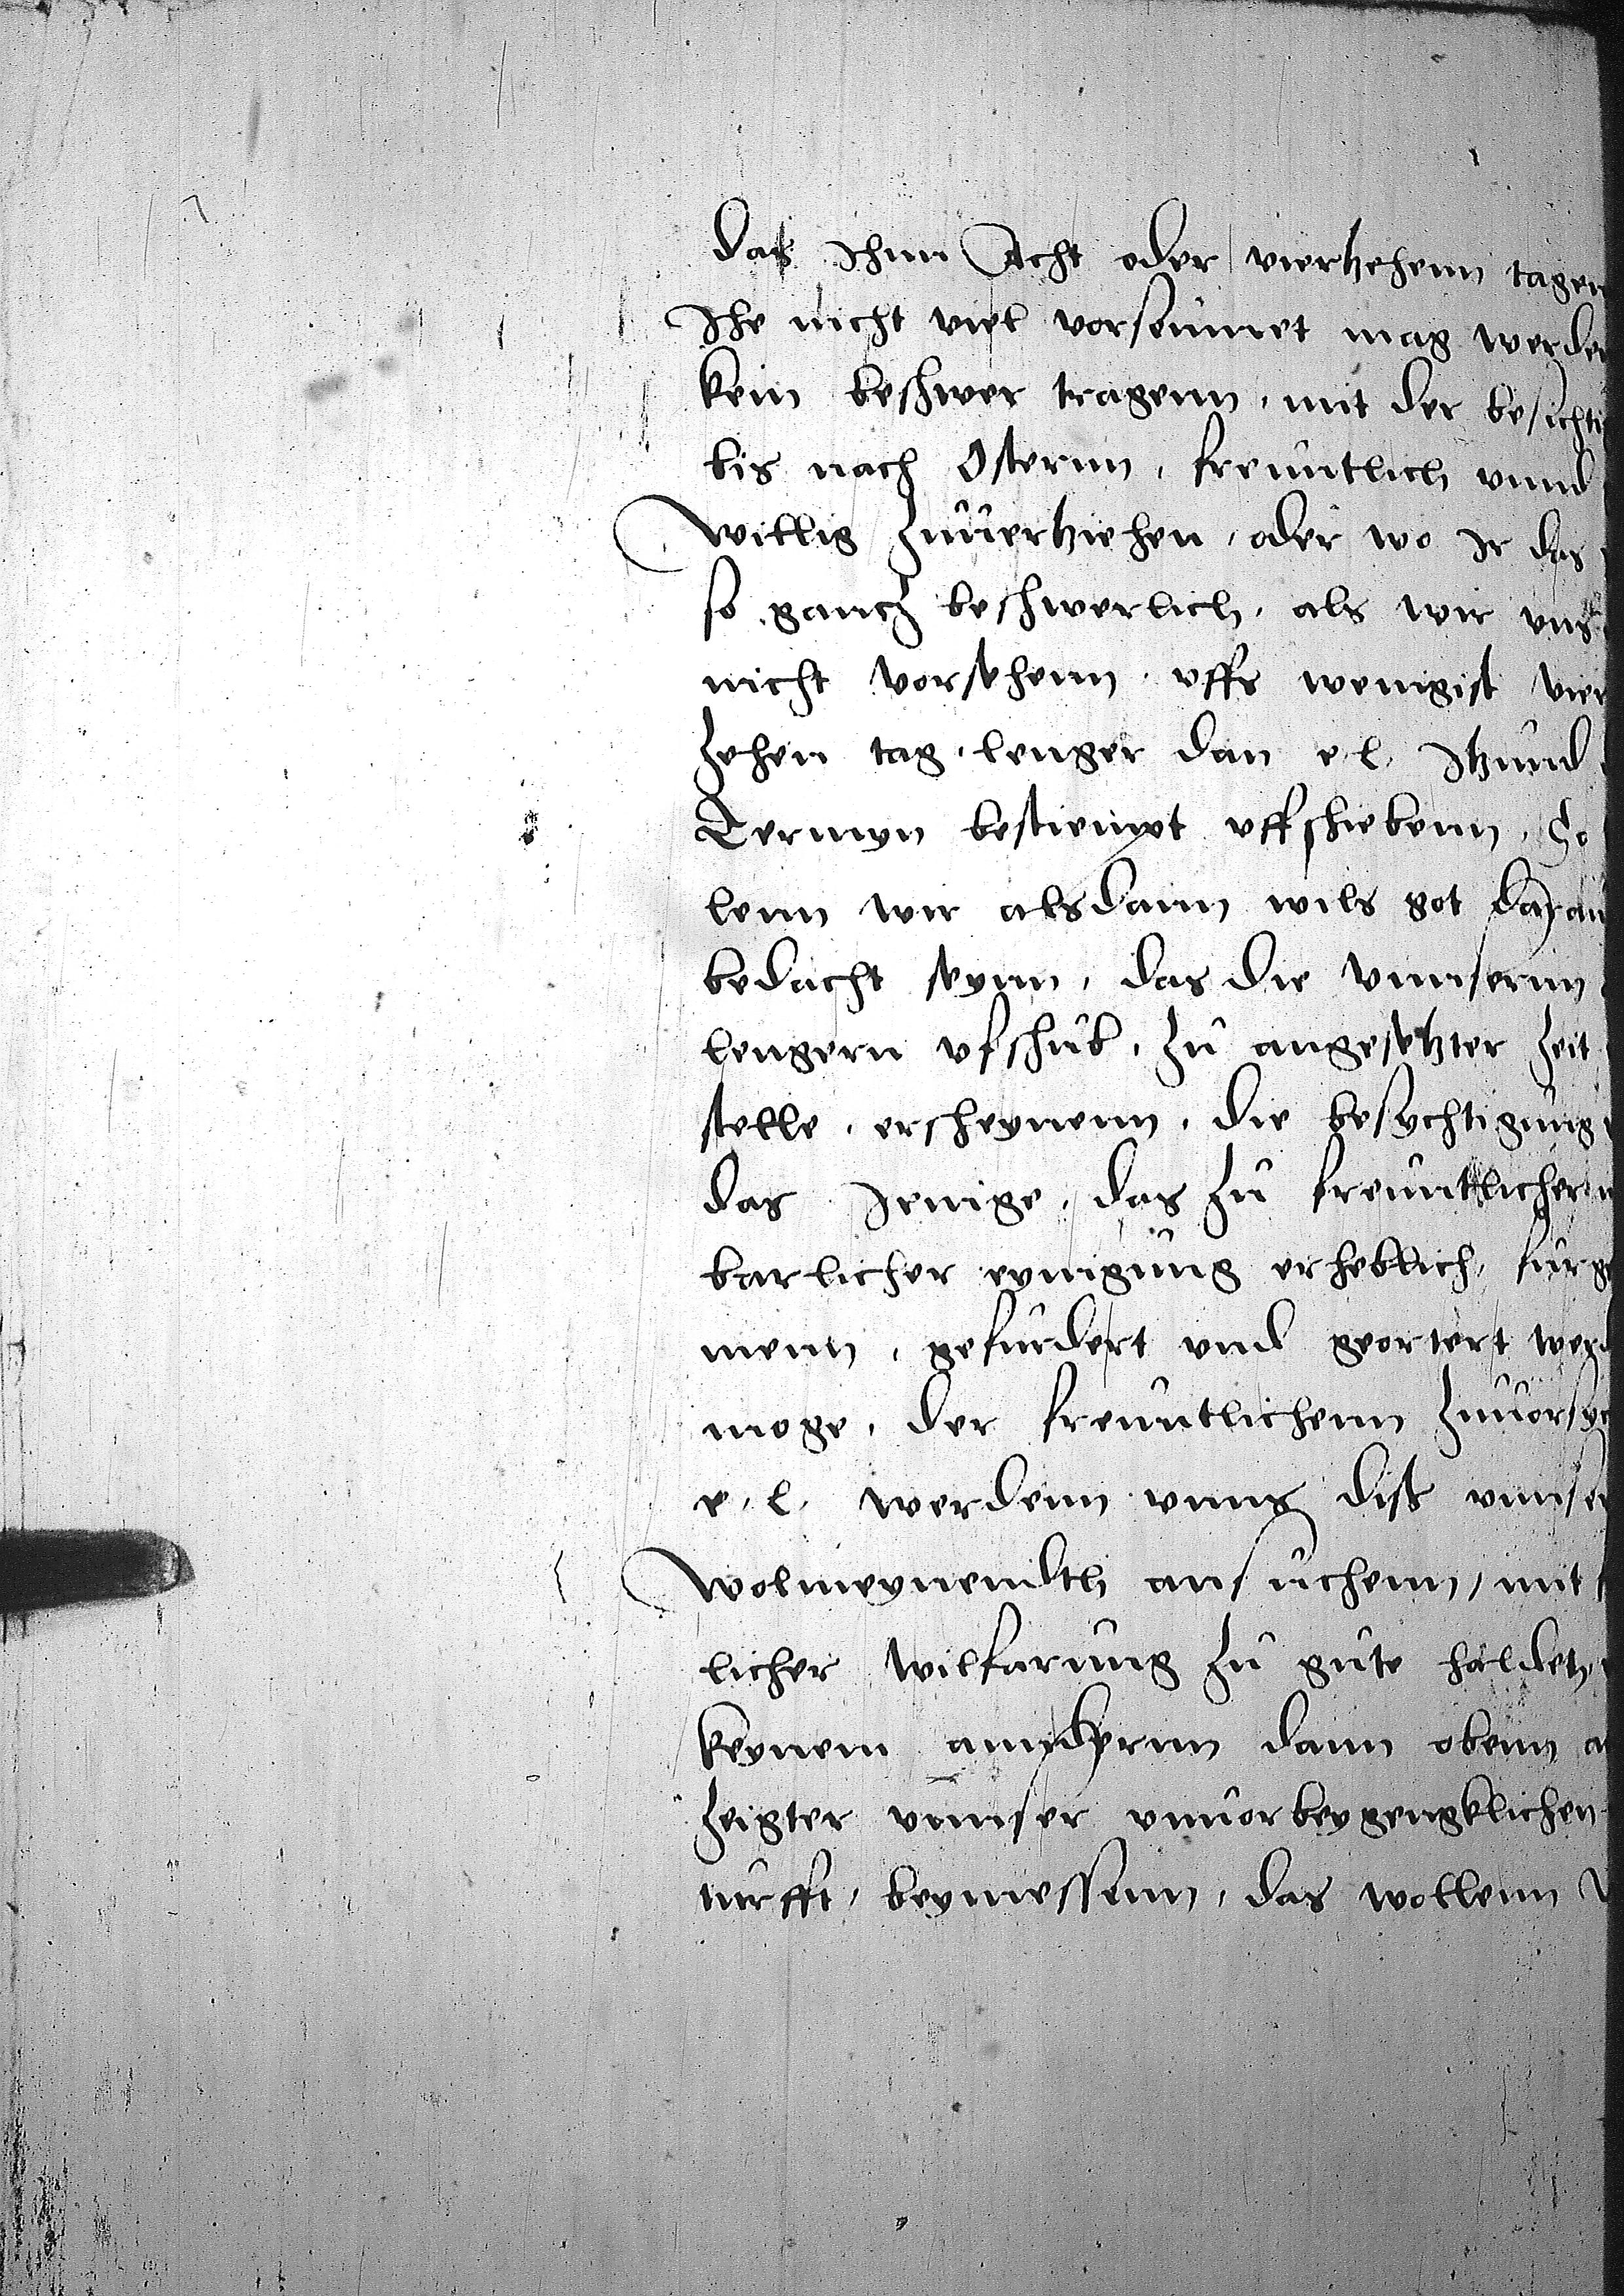 das Ihnn Acht oder vierhzehenn tagen
Ihe nicht viel vorseumet mag werden
kein beschwer tragenn, mit der besichti
bis nach Osternn, freuntlich vnnd
willig zuuerhziehen, oder wo Ir das
so gancz beschwerlich, als wir vns
nicht vorsehenn, vffs wenigist vier
zehen tag, lenger dan e. l. Itzund
Termyn bestiempt vffschiebenn, So
lenn wir alsdann wils got darau
bedacht seynn, das die vnnsernn
lengern vfschub, zu angesetzter zeit
stelle, erscheynenn, die besychtigung
das Jenige, das zu freuntlicher
barlicher eynigung erheblich, furge
menn, gefurdert vnd geortert werd
moge, der freuntlichenn zuuorsyc
e. l. werdenn vnns dis vnnser
wolmeynendtlh ansuchenn, mit
licher wilfarung zu gute haldetz,
keynem anndernn dann obenn a
zeigter vnnser vnuorbeygengklichen
turfft, beymessenn, das wollenn